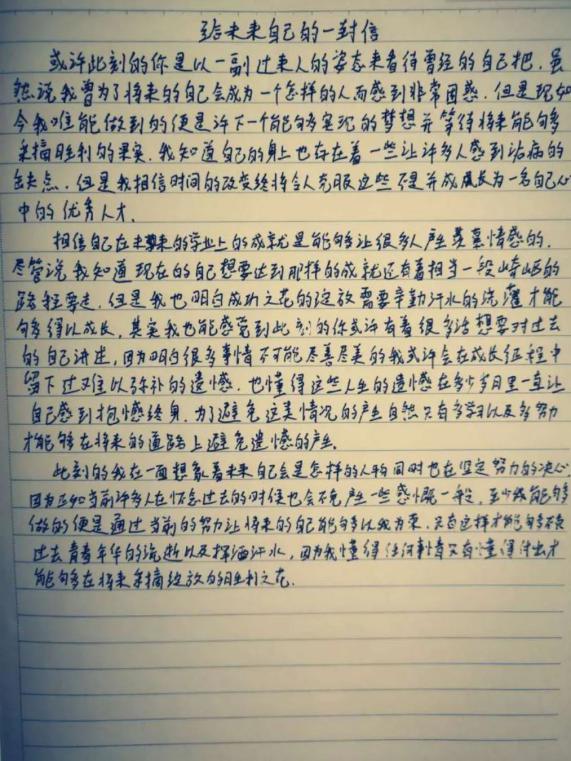 给未来自己的一封信
或许此刻的你是以一副过来人的姿态来看待曾经的自己把，虽
然说我曾为了将来的自己会成为一个怎样的人而感到非常困惑．但是现如
今我唯能做到的便是许下一个能够多实现的梦想并等待将来能够
采摘胜利的果实．我知道自己的身上也存在着一些让许多人感到诟病的
缺点．但是我相信时间的改变终将令人克服这些不足并成长为一名自己心
中的优秀人才．
相信自己在未来的学业上的成就是能够让很多人产生羡慕情感的．
尽管说我知道现在的自己想要达到那样的成就还有着相当一段崎岖的
路程要走．但是我也明白成功之花的绽放需要辛勤汗水的浇灌才能
够得以成长．其实我也能感觉到此刻的你或许有着很多话想要对过去
的自己讲述，因为明白很多事情不可能尽善尽美的我或许会在成长征程中
留下过难以弥补的遗憾．也懂得这些人生的遗憾在多少岁月里一直让
自己感到抱憾终身．为了避免这类情况的产生自然只有多学习以及多努力
才能够在将来的道路上避免遗憾的产生．
此刻的我在一面想象着未来自己会是怎样的人物同时也在坚定努力的决心
因为正如当前许多人在怀念过去的时候也会不免产生一些感慨一般．至少我能够
做的便是通过当前的努力让将来的自己能够以我为荣．只有这样才能够不负
过去青春年华的流逝以及挥洒汗水，因为我懂得任何事情只有懂得付出才
能够在将来采摘绽放的胜利之花．